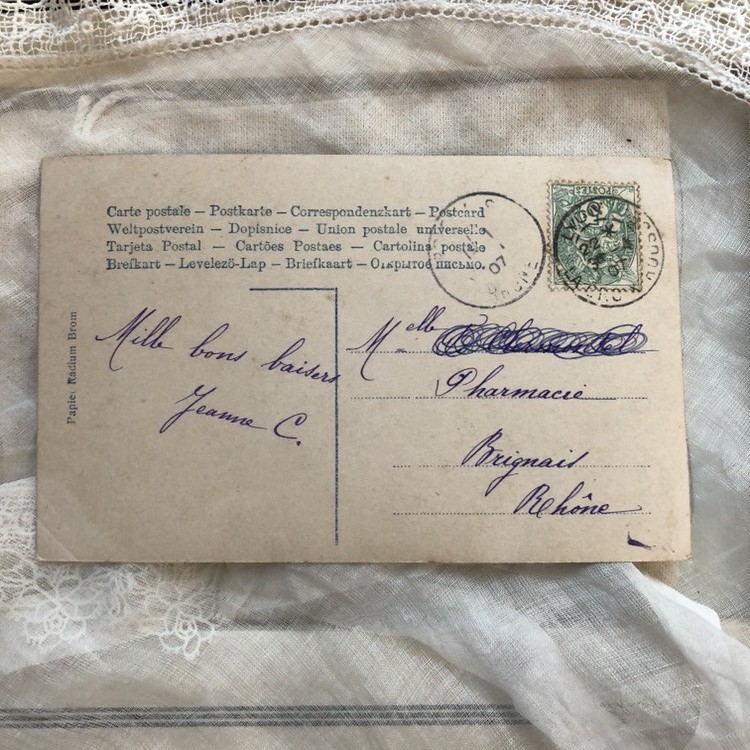 Carte postale – Postkarte – Correspondenzkart – Postcard
Weltpostverein – Dopisnice – Union postale universelle
Tarjeta Postal – Cartões Postaes – Cartolina postale
Brefkart – Levelező-Lap – Briefkaart – Открытое письмо.
POSTES
07
RHONE
Papier Radium Brom
Mille bons baisers
Jeanne C.
Melle
Pharmacie
Brignais
Rhône